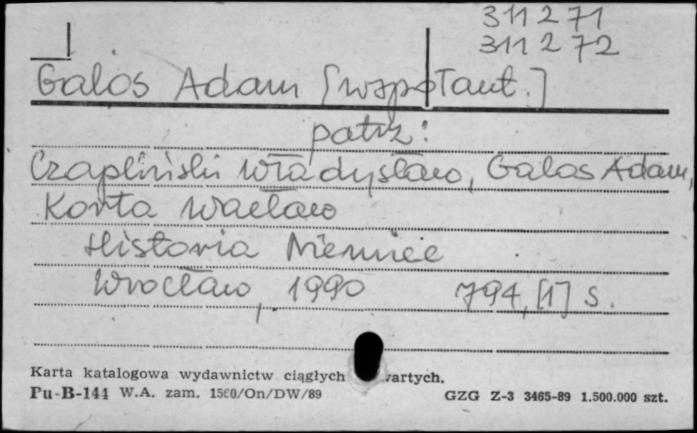 311271
311272
Galos Adam [współaut.]
patrz:
Czapliński Władysław, Galos Adam,
Korta Wacław
Historia Niemiec
Wrocław, 1990 794,[1] s.
Karta katalogowa wydawnictw ciągłych wartych.
Pu-B-144 W.A. zam. 1560/On/DW/89 GZG Z-3 3465-89 1.500.000 szt.